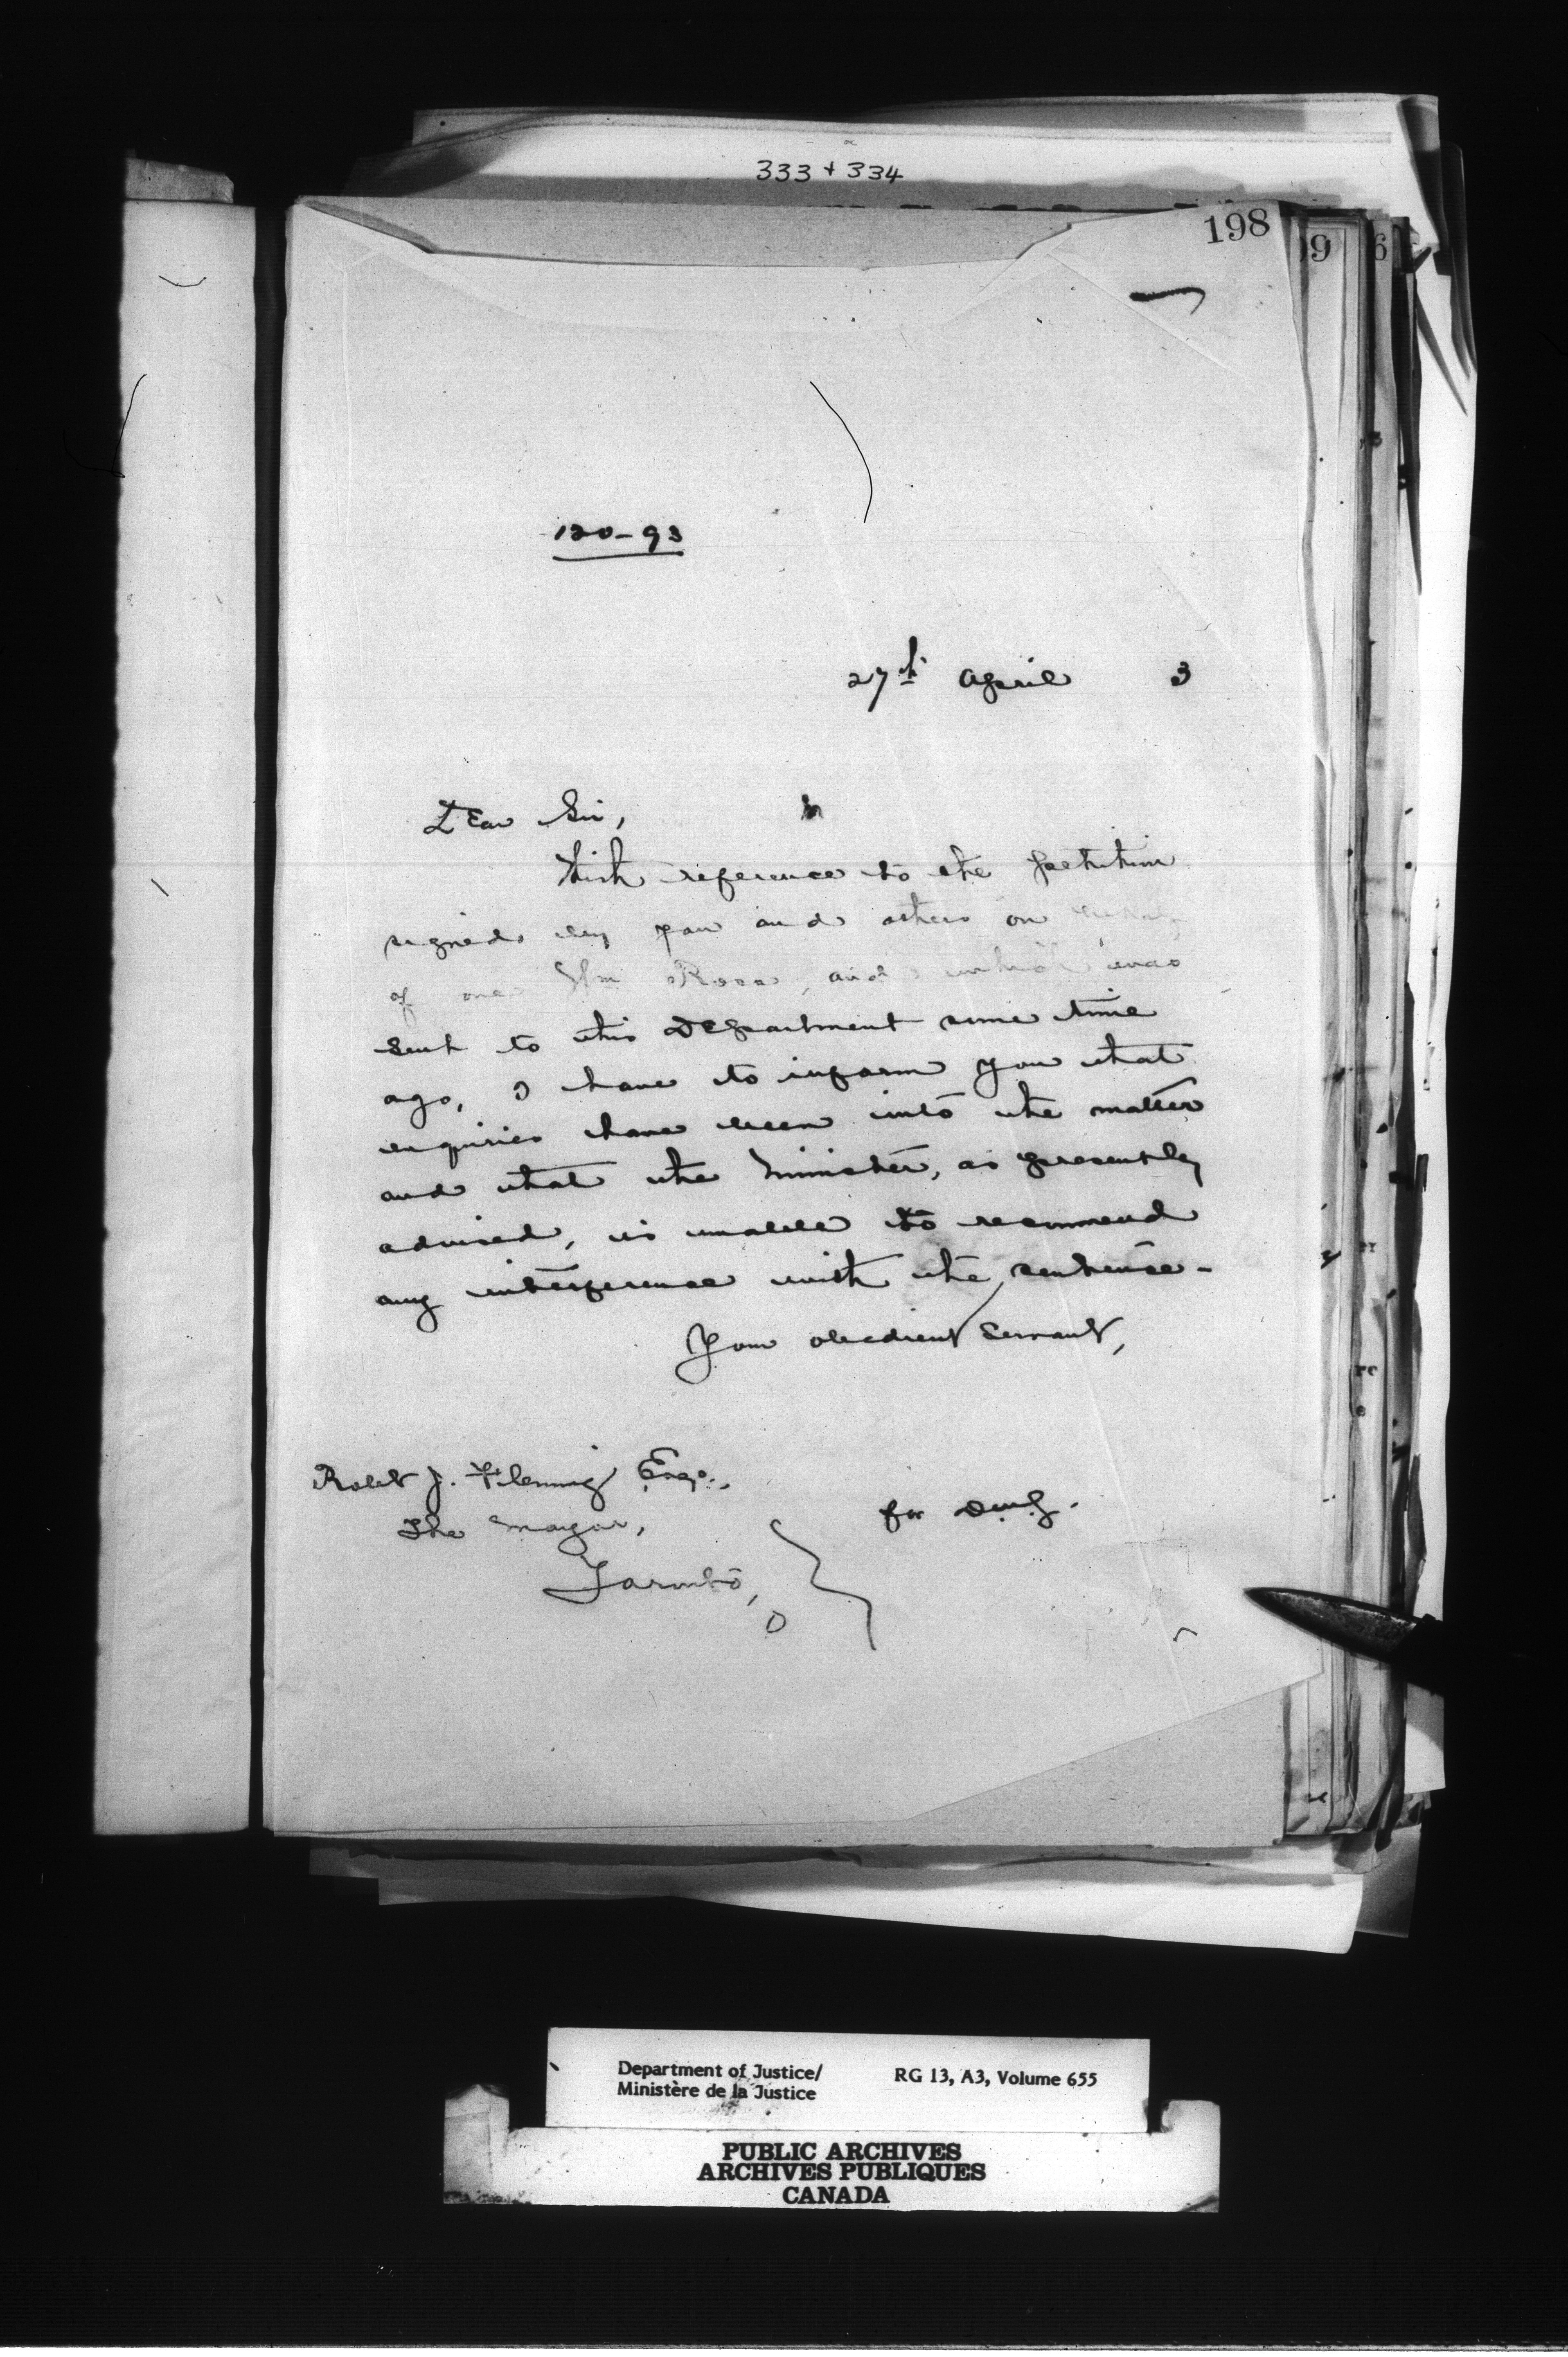 333 + 334
198
99
6
120-93
27th April 3
Dear Sir,
With reference to the petition
signed by you and others on behalf
of one Wm Ross, and which was
sent to this Department some time
ago, I have to inform you that
enquiries have been into the matter
and that the Minister, as presently
advised, is unable to recommend
any interference with the sentence -
Your obedient Servant,
Robt J. Fleming Esqr.,
The Mayor,
Toronto,
O
for D.M.J.
Department of Justice/ RG 13, A3, Volume 655
Ministère de la Justice
PUBLIC ARCHIVES
ARCHIVES PUBLIQUES
CANADA